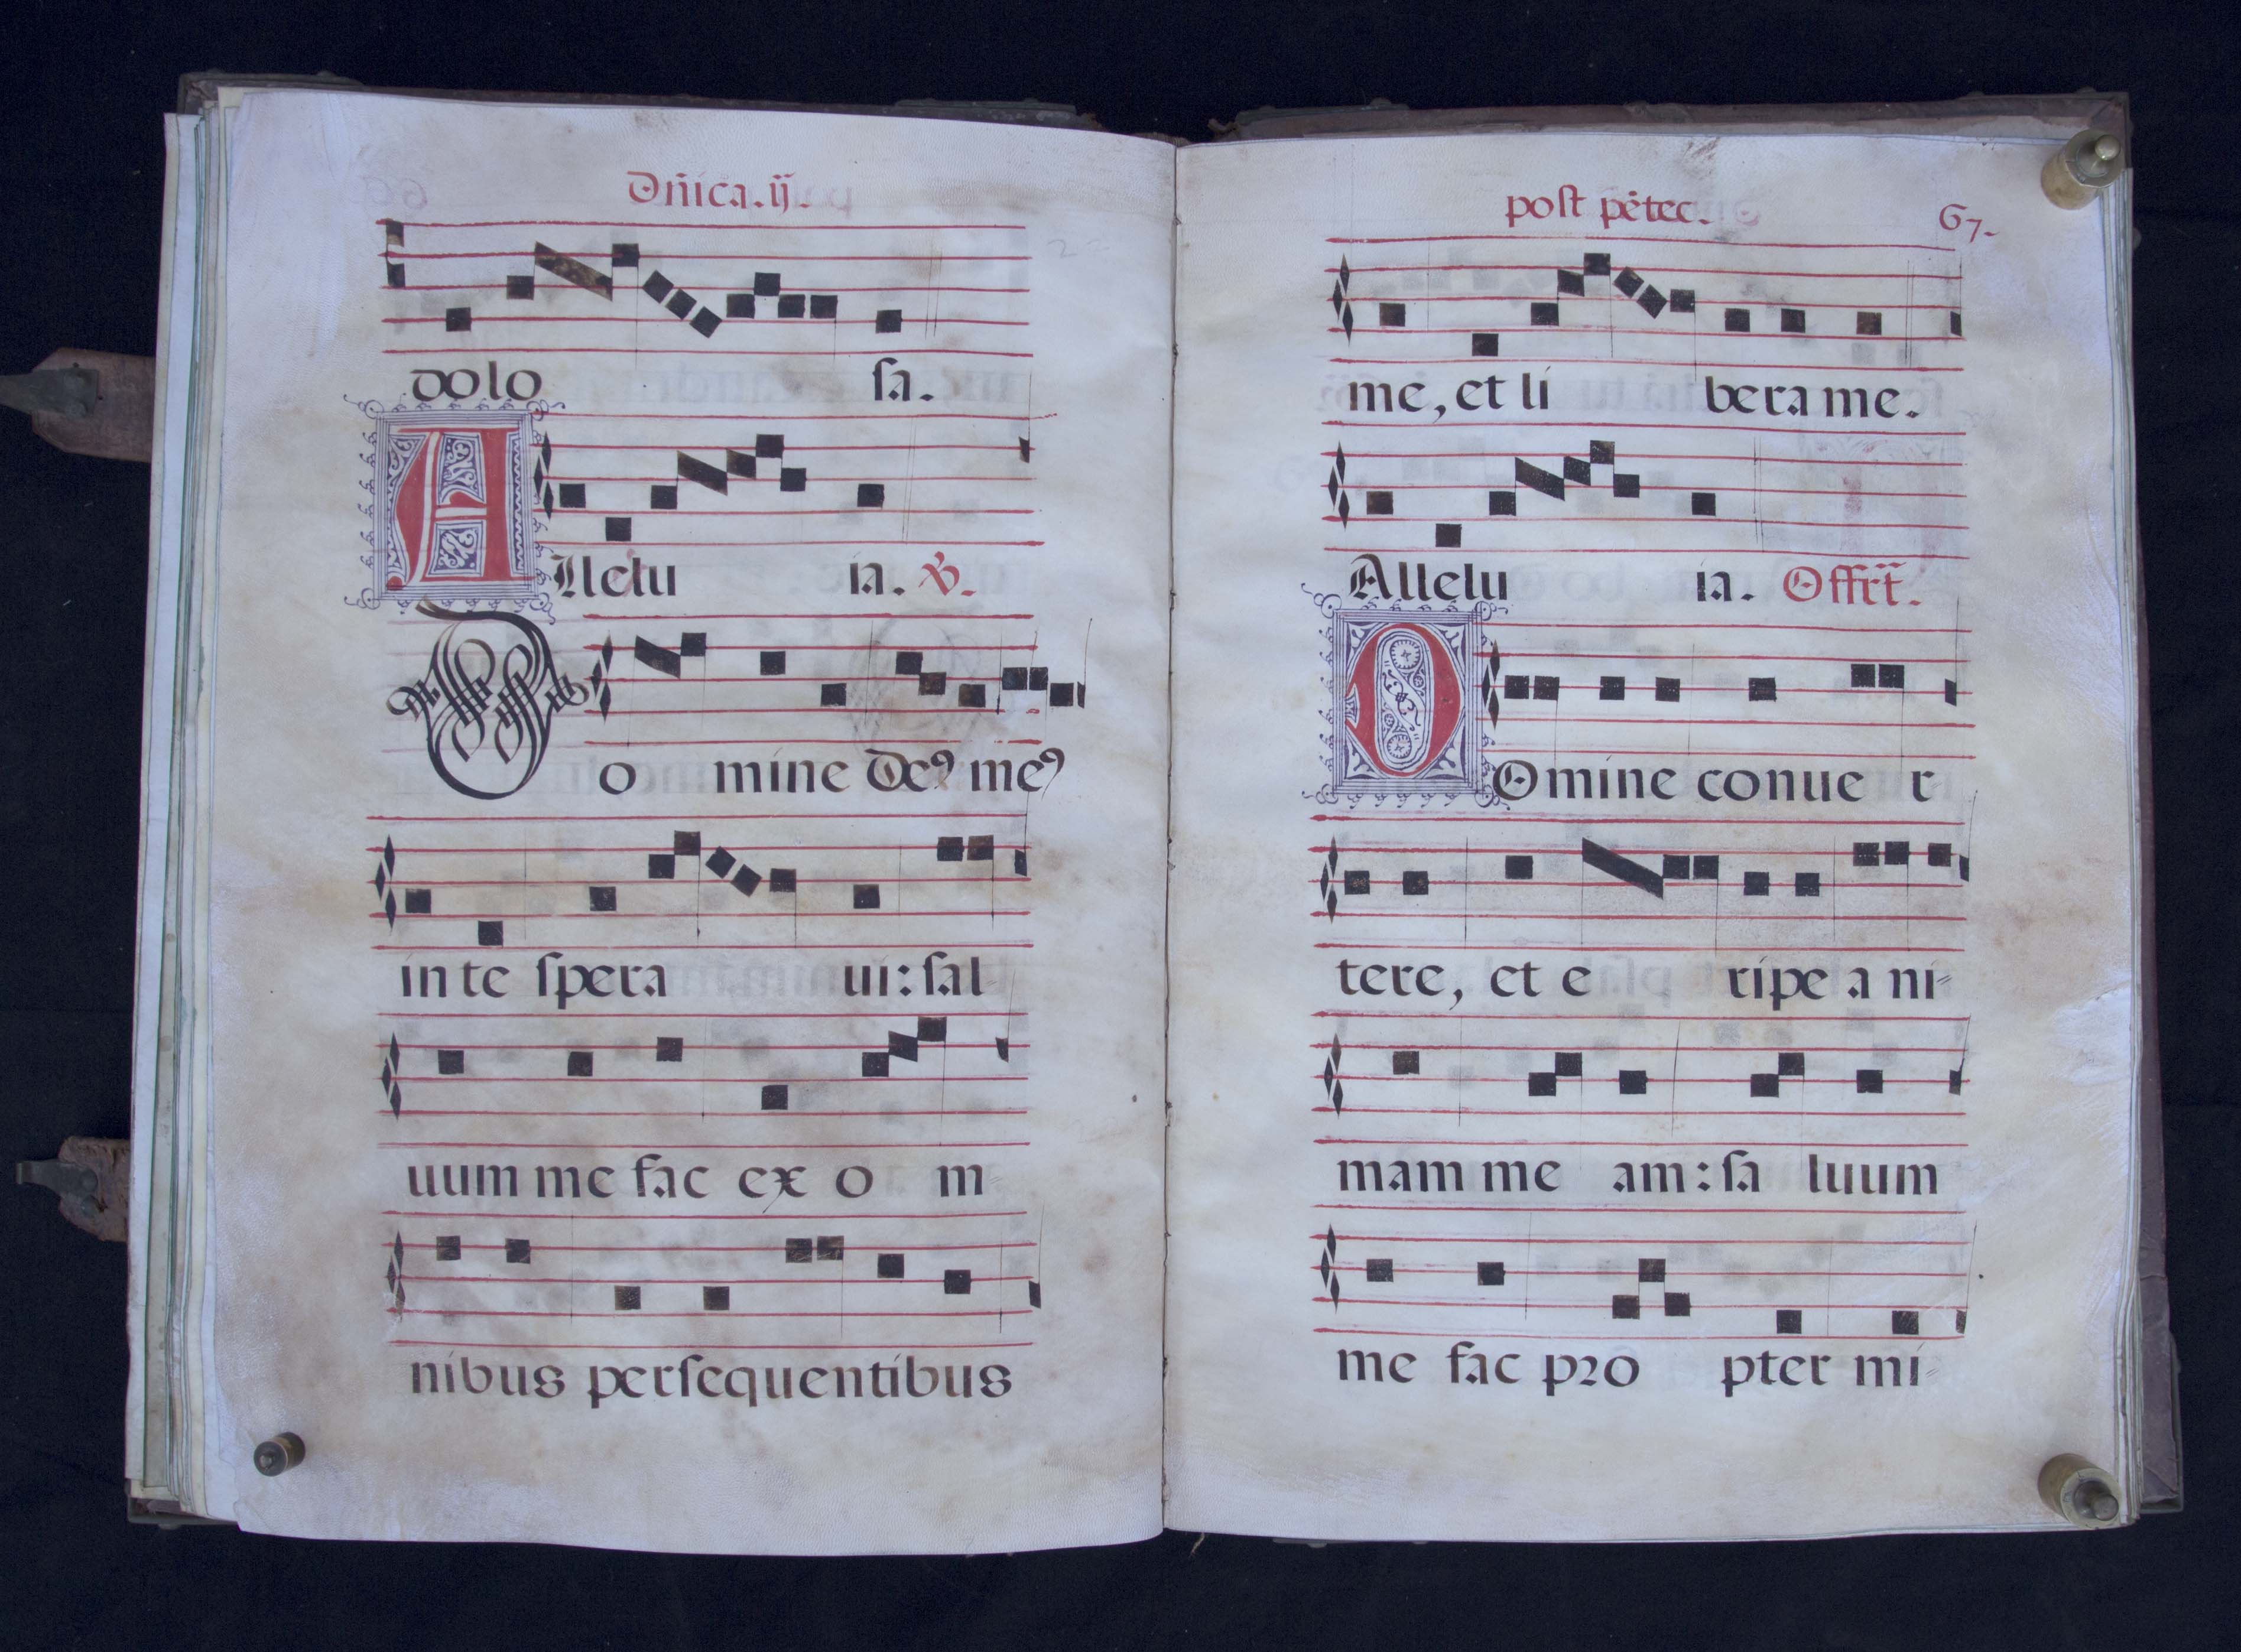 Dñica.ij.
dolo sa.
Alleluia. ℣.
Domine De⁹ me⁹
in te spera ui: sal-
uum me fac ex o m-
nibus persequentibus
post pẽtec. 67.
me, et li bera me.
Allelu ia. Offrt̃.
Domine conue r
tere, et e ripe a ni-
mam me am: sa luum
me fac pro pter mi-